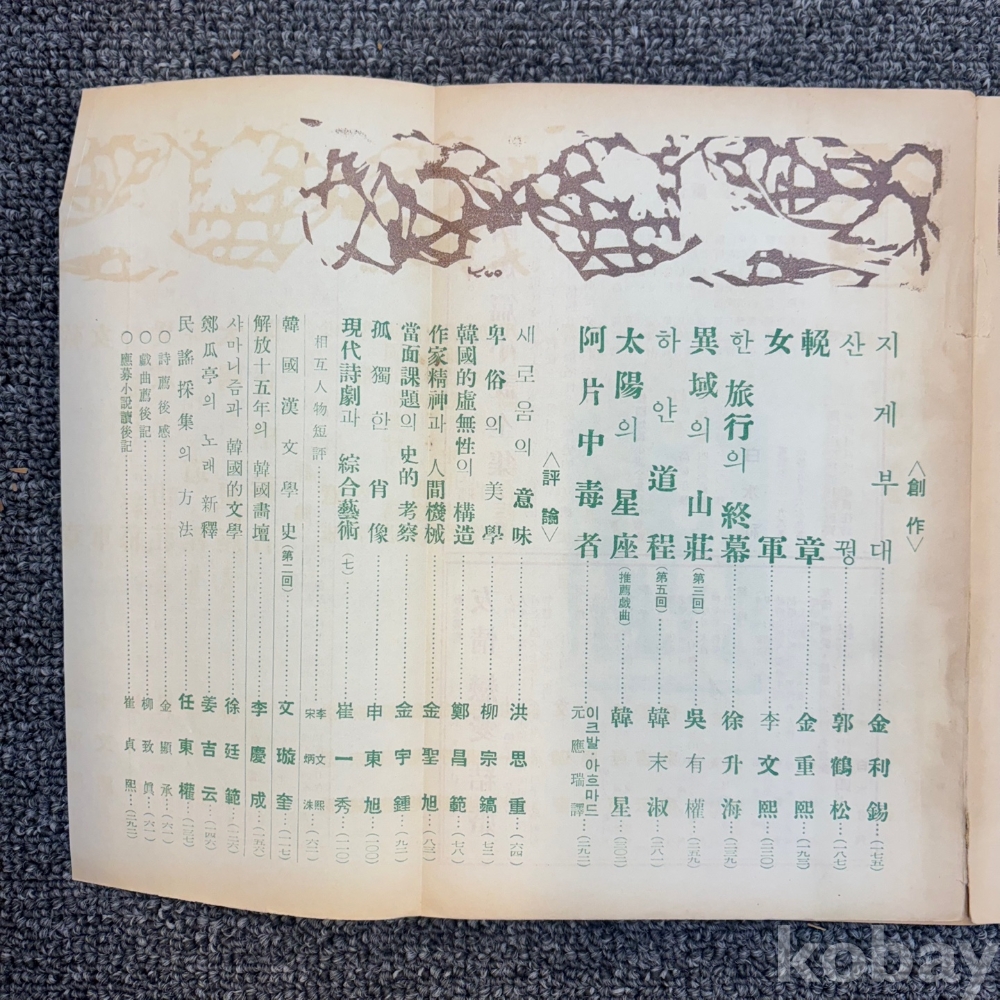 〈創作〉
지게부대 金利錫 (一七五)
산 꿩 郭鶴松 (一八七)
輓章 金重熙 (一九三)
女軍 李文熙 (二二〇)
한 旅行의 終幕 徐升海 (二三九)
異域의 山莊 (第三回) 吳有權 (二五九)
하얀 道程 (第五回) 韓末淑 (二八一)
太陽의 星座 (推薦戱曲) 韓星 (二〇二)
阿片中毒者 이크발·아흐마드 元應瑞譯 (二九二)
〈評論〉
새로움의 意味 洪思重 (六四)
卑俗의 美學 柳宗鎬 (七二)
韓國的虛無性의 構造 鄭昌範 (七八)
作家精神과 人間機械 金聖旭 (八三)
當面課題의 史的 考察 金宇鍾 (九二)
孤獨한 肖像 申東旭 (一〇〇)
現代詩劇과 綜合藝術 (七) 崔一秀 (一一〇)
相互人物短評 李文熙 宋炳洙 (六二)
韓國漢文學史 (第二回) 文璇奎 (二一七)
解放十五年의 韓國畵壇 李慶成
샤마니즘과 韓國的文學 徐廷範
鄭瓜亭의 노래 新釋 姜吉云
民謠採集의 方法 任東權
○詩薦後感 金顯承
○戱曲薦後記 柳致眞
○應募小說讀後記 崔貞熙
kuo
kobay